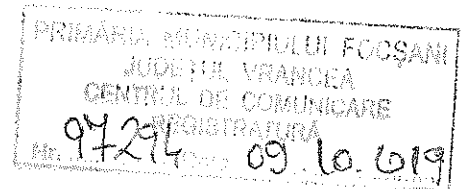 PRIMĂRIA MUNICIPIULUI FOCŞANI
JUDEŢUL VRANCEA
CENTRUL DE COMUNICARE
REGISTRATURĂ
Nr. 97294 09 10. 2019